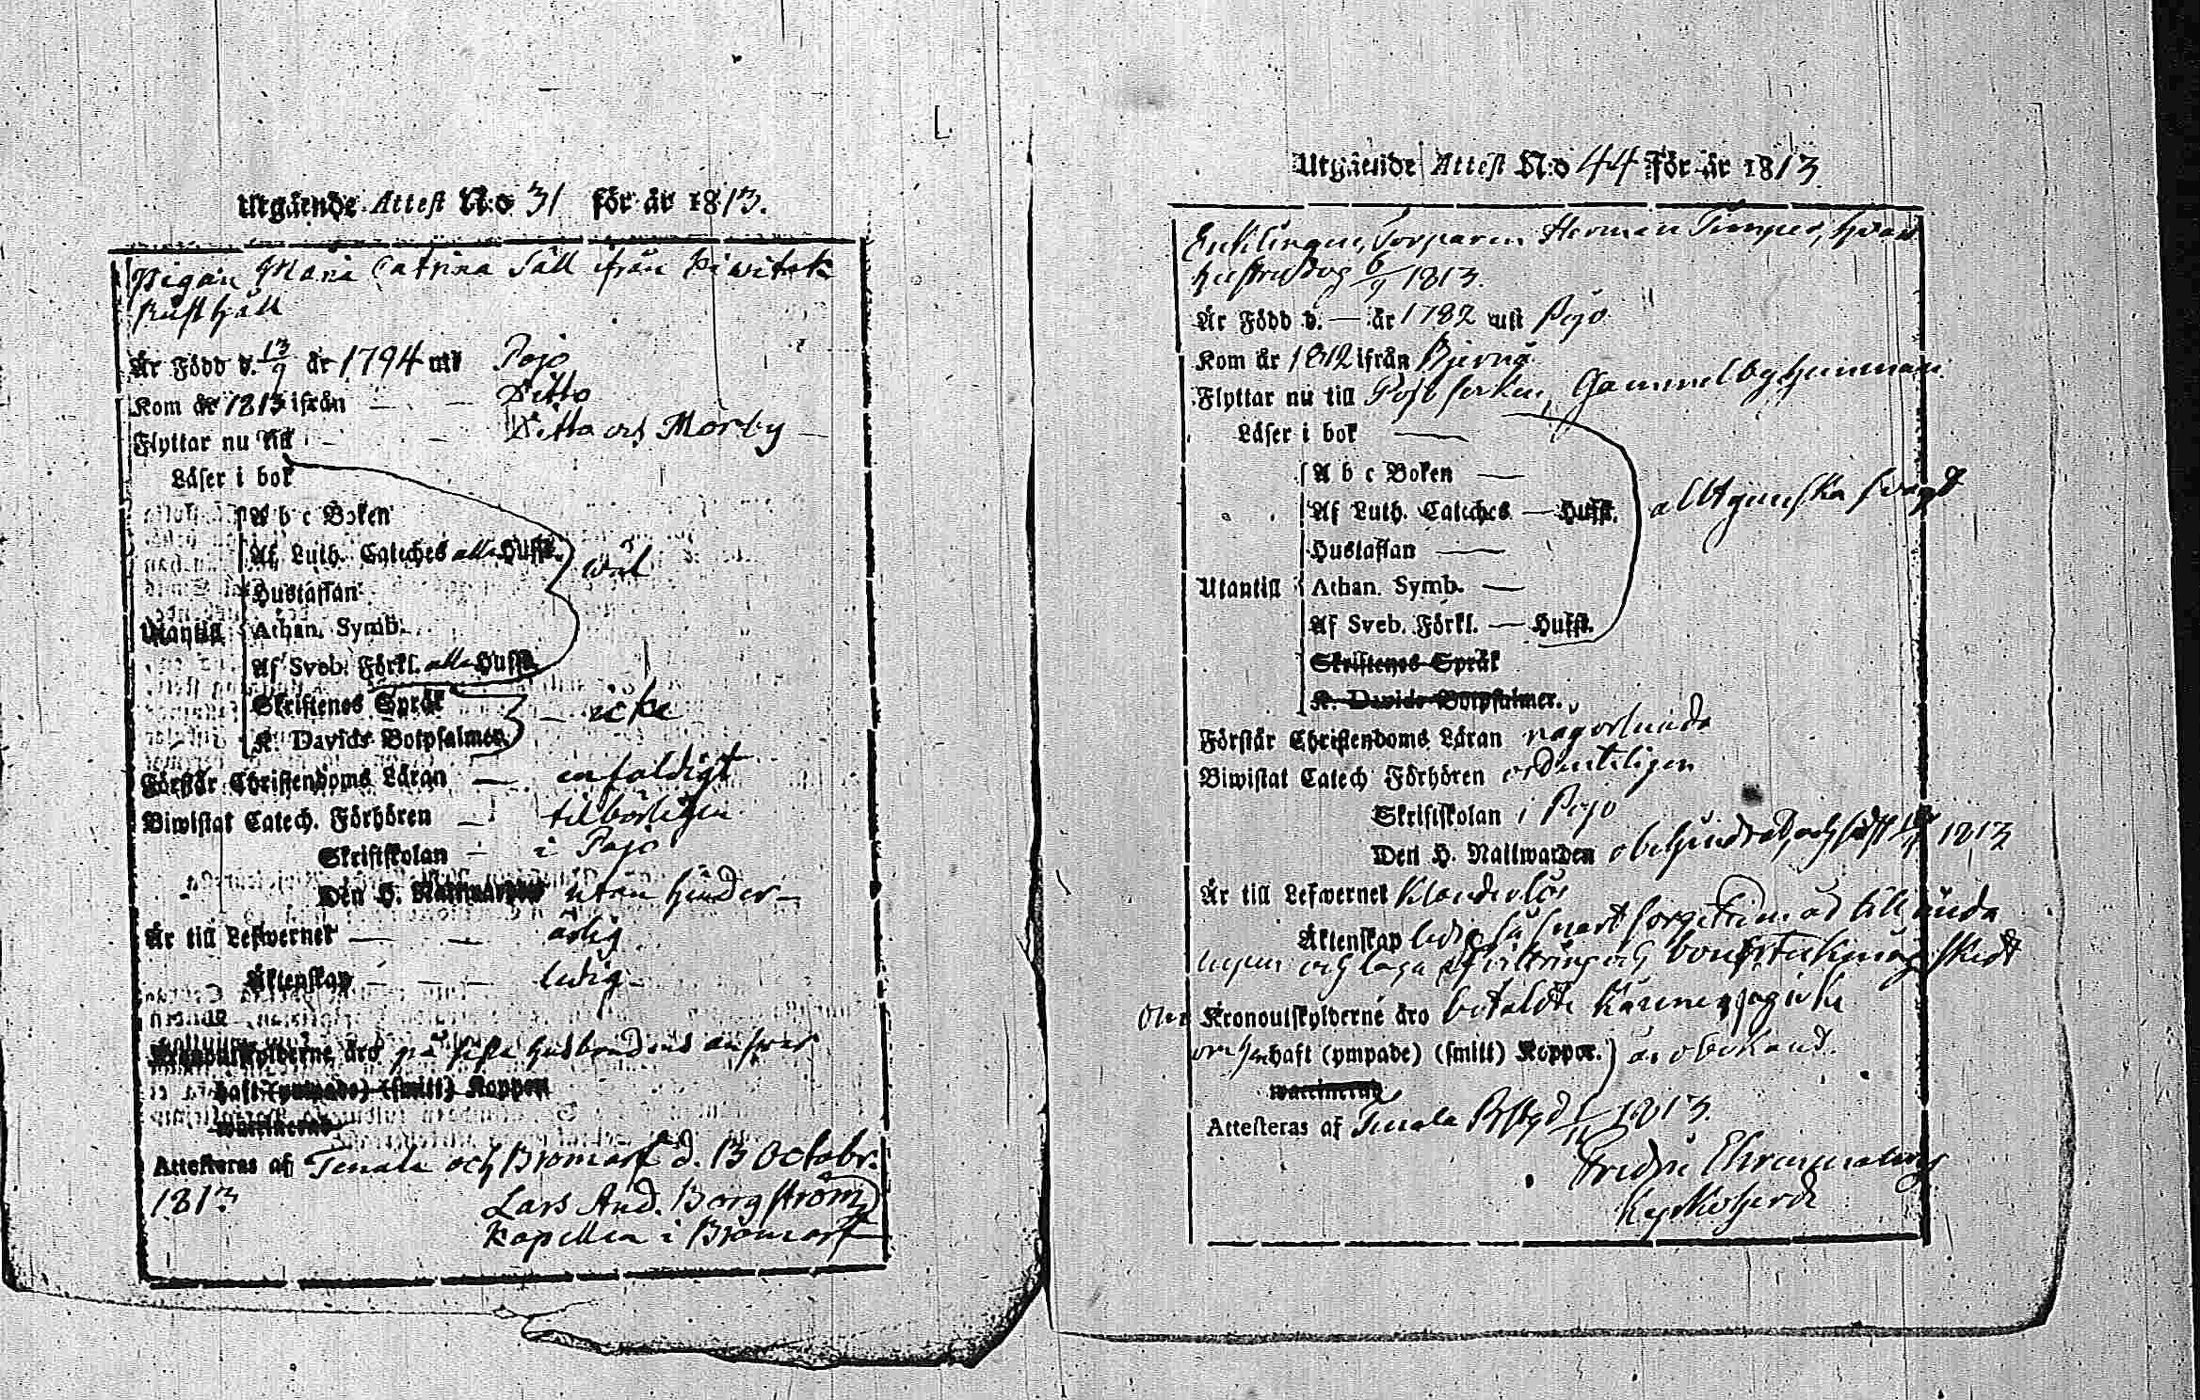 Utgående Attest N:o 31 för år 1813.
Pigan Maria Catrina Säll ifrån
Rusthåll
Är Född d. 13/9 år 1794 uti Pojo
Kom år 1813 ifrån — — Ditto
Flyttar nu till — — Ditto och Morby —
Läser i bok
A b c Boken
Af Luth. Cateches alla Hufst. wäl
Hustaflan
Utantill Athan. Symb.
Af Sveb. Förkl. alla Hufst.
Skriftenes Språk — icke
K. Davids Botpsalmer.
Förstår Christendoms Läran — enfaldigt
Biwistat Catech. Förhören — tilbörligen
Skriftskolan — i Pojo
Den H. Nattwarden utan hinder —
Är till Lefwernet — — ärlig
Äktenskap — — — ledig
Kronoutskylderne äro på sista husbondens answar
haft (ympade) (smitt) Koppor
Attesteras af Tenala och Bromarf d. 13 Octobr.
1813 Lars And. Borgström
Kapellan i Bromarf
Utgående Attest N:o 44 för år 1813
Enklingen, Torparen Herman Timper, hwars
hustru dog 6/9 1813.
Är Född d. — år 1782 uti Pojo
Kom år 1812 ifrån Bjerno
Flyttar nu till Gammelby hemman
Läser i bok —
A b c Boken —
Af Luth. Cateches — Hufst. alt ganska swagt
Hustaflan —
Utantill Athan. Symb. —
Af Sveb. Förkl. — Hufst.
Skriftenes Språk
K. Davids Botpsalmer.
Förstår Christendoms Läran någorlunda
Biwistat Catech Förhören ordentligen
Skriftskolan i Pojo
Den H. Nattwarden obehindrad, och sidst 1813
Är till Lefwernet Klanderlös
Äktenskap ledig så snart sorgetiman till ända
lupen och laga afwittring och skedt
Om Kronoutskylderne äro betaldte känner jag icke
haft (ympade) (smitt) Koppor. är obekand.
Attesteras af Tenala 1813.
Kyrkioherde